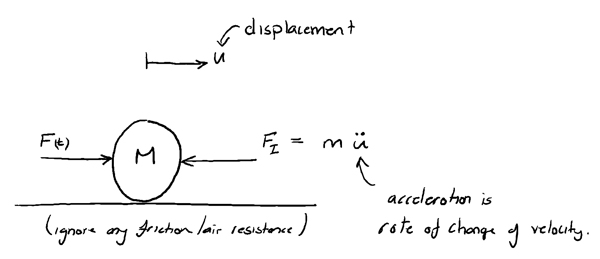 displacement
u
F(t)
M
F_I = m ü
acceleration is
rate of change of velocity.
(ignore any friction/air resistance)